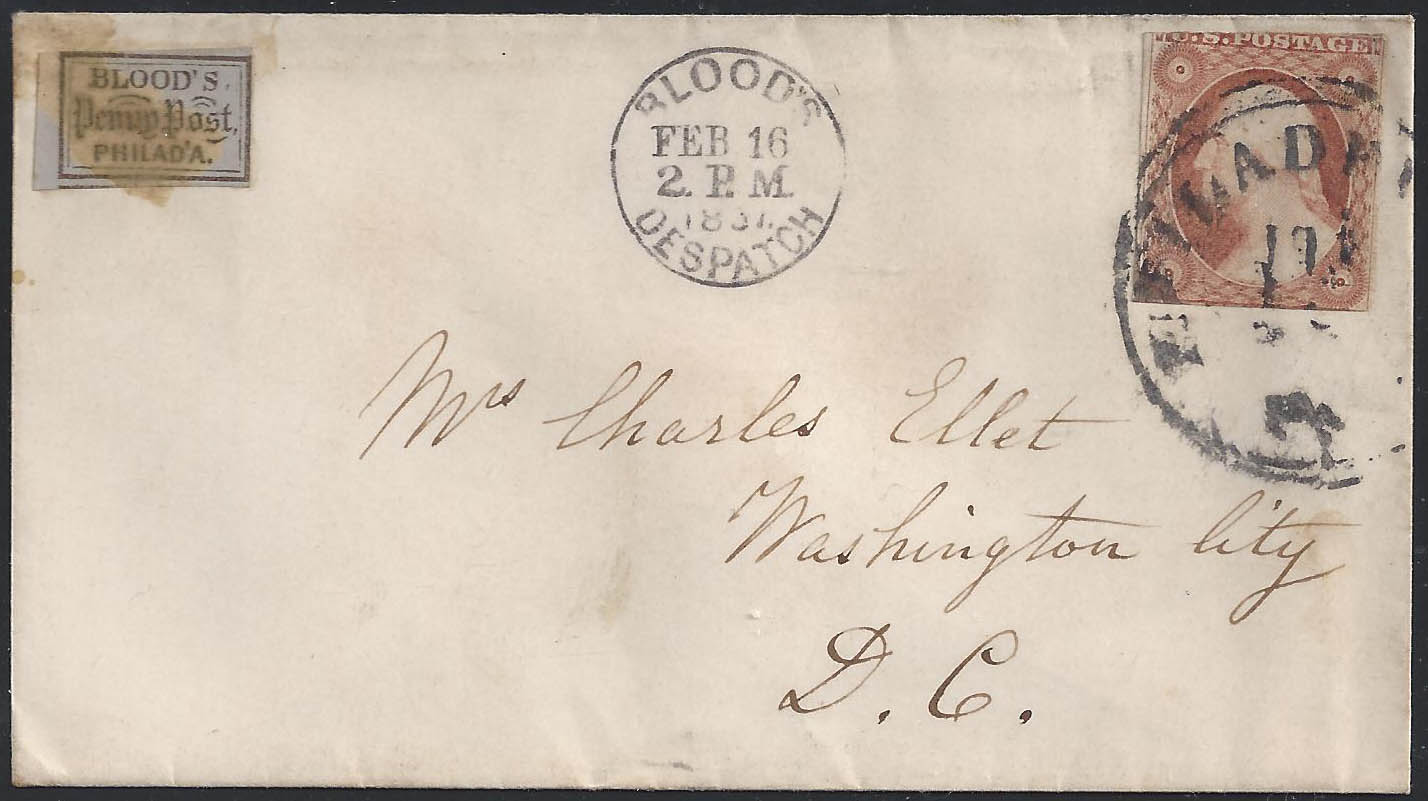 BLOOD'S
Penny Post,
PHILAD'A.
BLOOD'S
FEB 16
2. P. M.
1857.
DESPATCH
U.S. POSTAGE
Mrs Charles Ellet
Washington City
D. C.